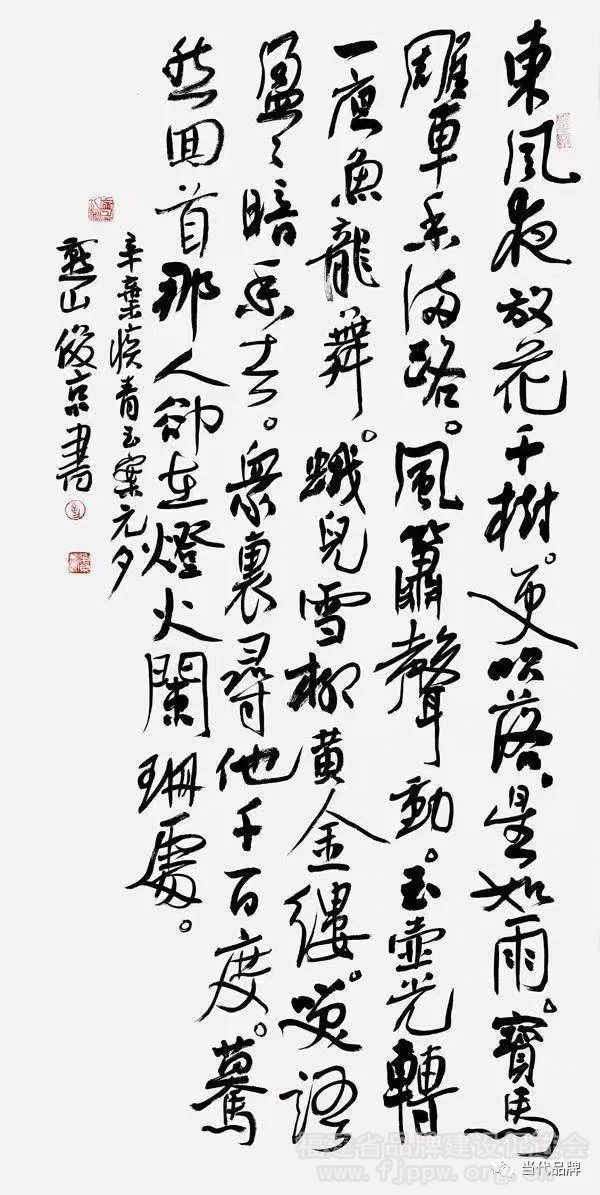 東風夜放花千樹。更吹落、星如雨。寶馬
雕車香滿路。風簫聲動。玉壺光轉
一夜魚龍舞。蛾兒雪柳黃金縷。笑語
盈々暗香去。衆裏尋他千百度。驀
然回首那人卻在燈火闌珊處。
辛棄疾青玉案元夕
山俊京書
福建省品牌建设促进会
www.fjppw.org.cn
当代品牌